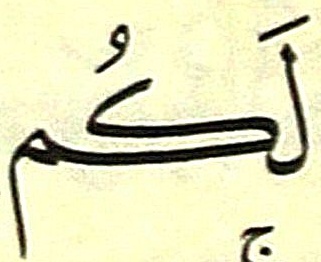 لَكُم
ج